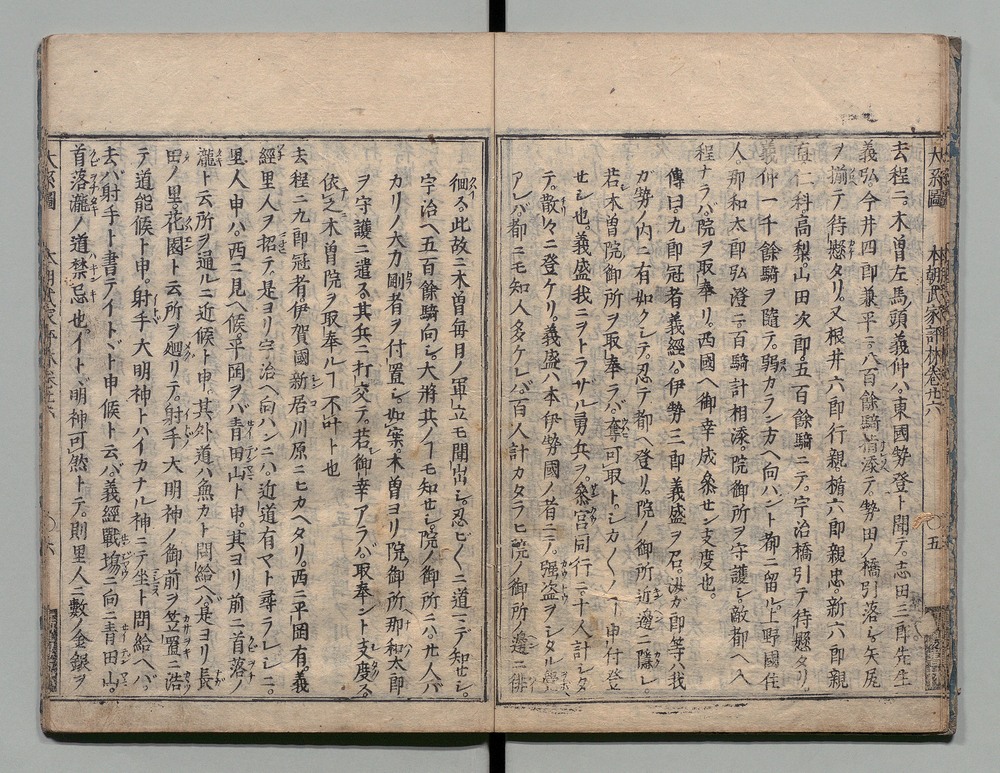 大系圖 本朝武家評林卷廿六 〇五
去程ニ木曽左馬頭義仲ハ東國勢登ト聞テ志田三郎先生
義弘今井四郎兼平ニ八百餘騎指添テ勢田ノ橋引落シ矢尻
ヲ揃テ待懸タリ又根井六郎行親楯六郎親忠新六郎親
直仁科高梨山田次郎五百餘騎ニテ宇治橋引テ待懸タリ
義仲一千餘騎ヲ隨テ弱カラン方ヘ向ハント都ニ留ル上野國住
人那和太郎弘澄ニ百騎計相添院御所ヲ守護シ敵都ヘ入
程ナラバ院ヲ取奉リ西國ヘ御幸成参セン支度也
傳曰九郎冠者義經ハ伊勢三郎義盛ヲ召汝カ郎等ハ我
ガ勢ノ内ニ有如クシテ忍テ都ヘ登リ院ノ御所近邊ニ隱シ
若木曽院御所ヲ取奉ラバ奪可取トシカ〱ノ申付登
セシ也義盛我ニヲトラザル勇兵ヲ参宮同行ニ十人計シタ
テ散々ニ登ケリ義盛ハ本伊勢國ノ者ニテ強盗ヲシタル
アレバ都ニモ知人多ケレバ百人計カタラヒ院ノ御所ノ邊ニ徘
徊ル此故ニ木曽毎日ノ軍立モ聞出シ忍ビ〱ニ道ニテ知セシ
宇治ヘ五百餘騎向シ大將共ノ名モ知セシ院ノ御所ニハ廿人バ
カリノ大力剛者ヲ付置シ如案木曽ヨリ院ノ御所ヘ那和太郎
ヲ守護ニ遣ル其兵ニ打交テ若御幸アラバ取奉ント支度ス
依之木曽院ヲ取奉ル不叶ト也
去程ニ九郎冠者伊賀國新居川原ニヒカヘタリ西ニ平岡有義
經里人ヲ招テ是ヨリ宇治ヘ向ハンニハ近道有マト尋ラレシニ
里人申ハ西ニ見ヘ候平岡ヲバ青田山ト申其ヨリ前ニ首落ノ
瀧ト云所ヲ通ルニ近候ト申其外道ハ無カト問給ヘバ是ヨリ長
田ノ里花園ト云所ヲ廻リテ射手大明神ノ御前ヲ笠置ニ浩
テ道能候ト申射手大明神トハイカナル神ニテ坐ト問給ヘバ
去バ射手ト書テイトヾト申候ト云バ義經戰場ニ向ニ青田山
首落瀧ノ道禁忌也イトヾ明神可然トテ則里人ニ數ノ金銀ヲ
大系圖 本朝武家評林卷廿六 〇六